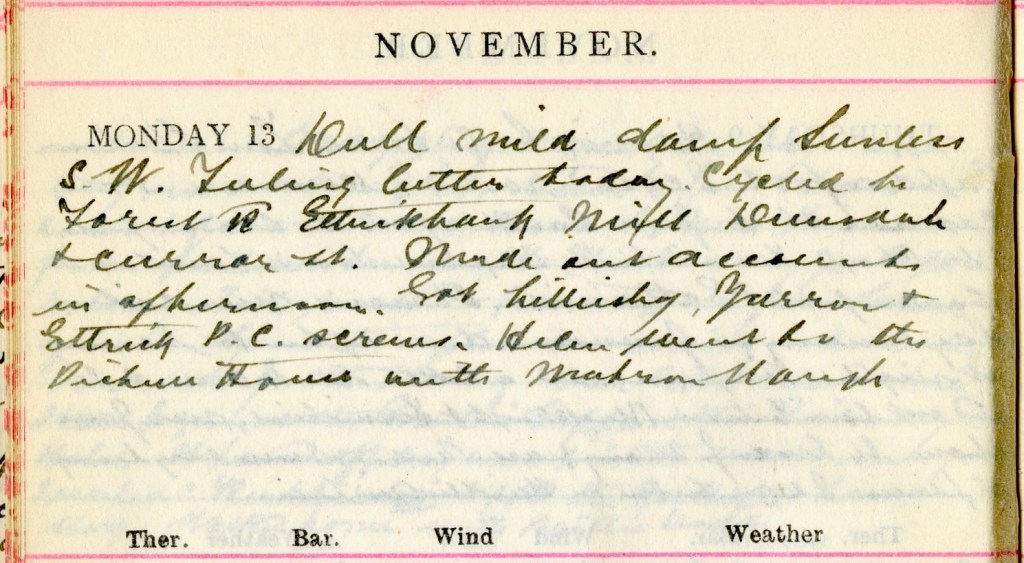 NOVEMBER.
MONDAY 13 Dull mild damp Sunless
S.W. Feeling better today. Cycled to
Forest Ettrickbank Mill Dunsdale
& Curror St. Made out accounts
in afternoon. Got Yarrow &
Ettrick P.C. screens. Helen went to the
Picture House with Matron Waugh
Ther. Bar. Wind Weather